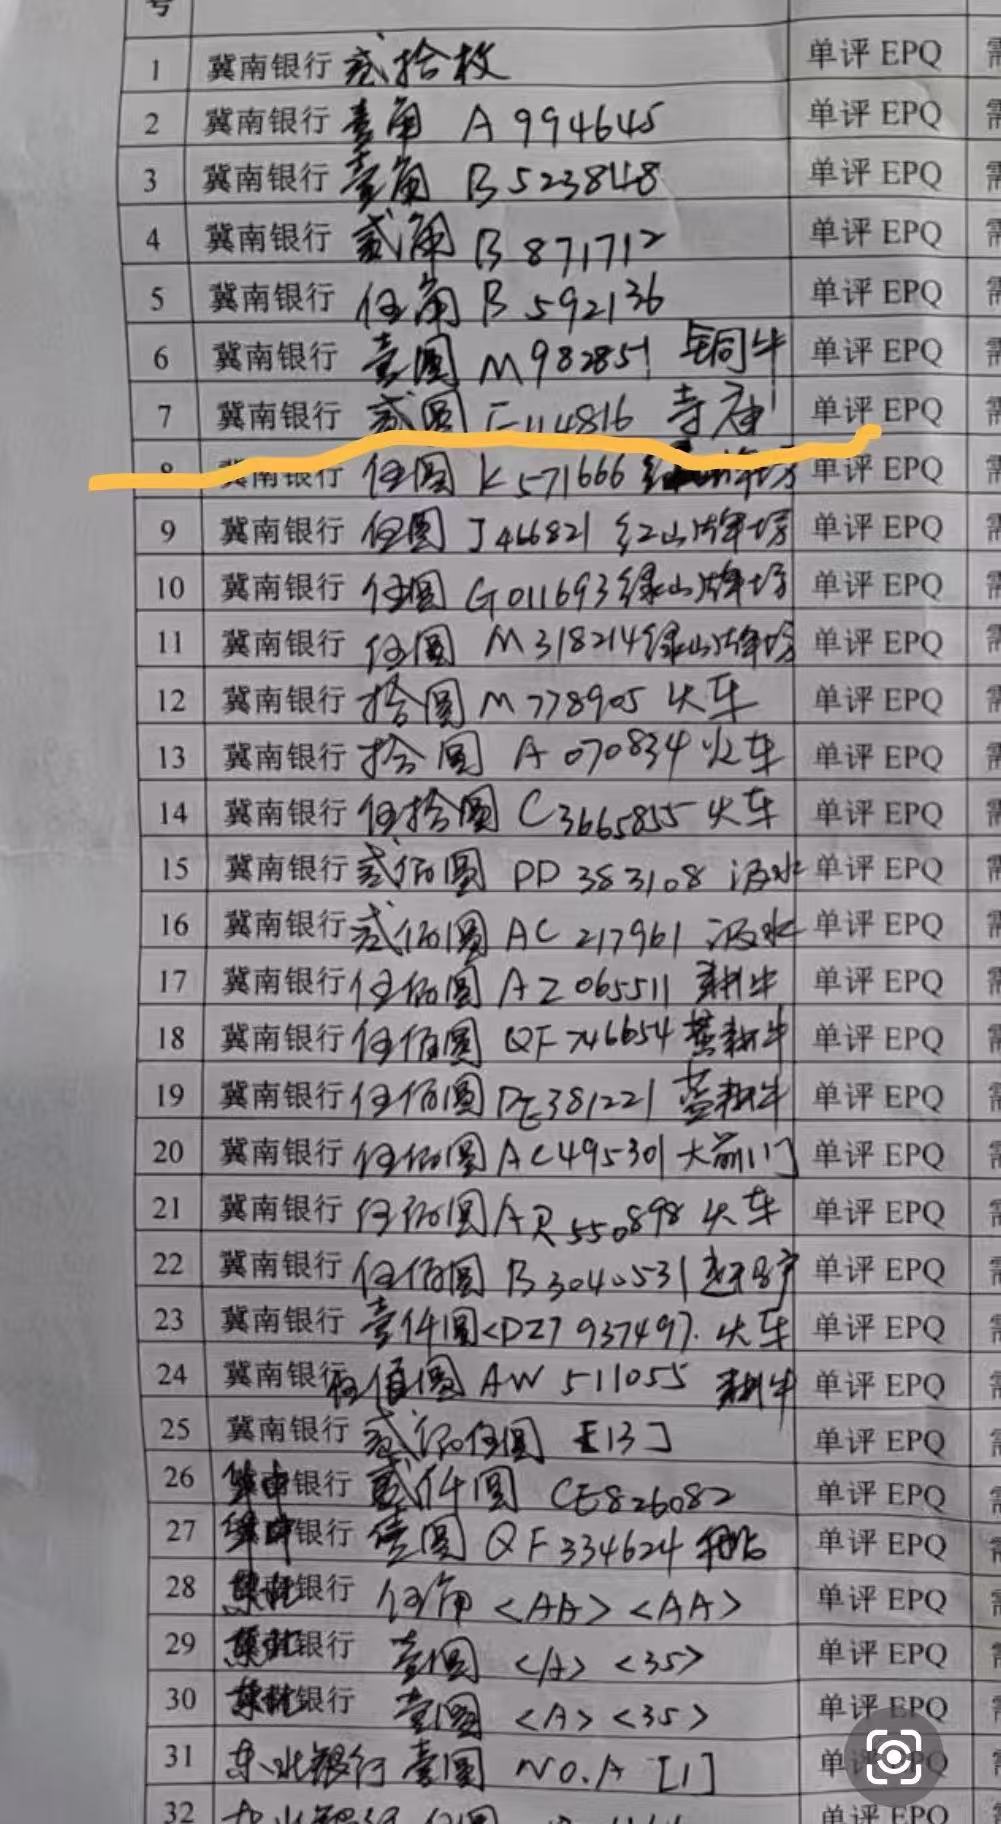 号
1 冀南银行 贰拾枚 单评 EPQ 需
2 冀南银行 壹角 A 994645 单评 EPQ 需
3 冀南银行 壹角 B 523848 单评 EPQ 需
4 冀南银行 贰角 B 871712 单评 EPQ 需
5 冀南银行 伍角 B 592136 单评 EPQ 需
6 冀南银行 壹圆 M 982851 铜牛 单评 EPQ 需
7 冀南银行 贰圆 E114816 寺庙 单评 EPQ 需
8 冀南银行 伍圆 K 571666 牌坊 单评 EPQ 需
9 冀南银行 伍圆 J 466821 红山牌坊 单评 EPQ 需
10 冀南银行 伍圆 G011693 绿山牌坊 单评 EPQ 需
11 冀南银行 伍圆 M 318214 绿山牌坊 单评 EPQ 需
12 冀南银行 拾圆 M 778905 火车 单评 EPQ 需
13 冀南银行 拾圆 A 070834 火车 单评 EPQ 需
14 冀南银行 伍拾圆 C3665855 火车 单评 EPQ 需
15 冀南银行 贰佰圆 DD 383108 汲水 单评 EPQ 需
16 冀南银行 贰佰圆 AC 217961 汲水 单评 EPQ 需
17 冀南银行 伍佰圆 AZ 065511 耕牛 单评 EPQ 需
18 冀南银行 伍佰圆 QF 746654 耕牛 单评 EPQ 需
19 冀南银行 伍佰圆 DE 381221 蓝耕牛 单评 EPQ 需
20 冀南银行 伍佰圆 AC495301 大前门 单评 EPQ 需
21 冀南银行 伍佰圆 AR 550898 火车 单评 EPQ 需
22 冀南银行 伍佰圆 B 3040531 单评 EPQ 需
23 冀南银行 壹仟圆 <DZ7 937497. 火车 单评 EPQ 需
24 冀南银行 伍佰圆 AW 511055 耕牛 单评 EPQ 需
25 冀南银行 贰佰伍圆 [13] 单评 EPQ 需
26 银行 贰仟圆 CE826082 单评 EPQ 需
27 银行 壹圆 QF 334624 单评 EPQ 需
28 银行 伍角 <AA> <AA> 单评 EPQ 需
29 银行 壹圆 <A> <35> 单评 EPQ 需
30 银行 壹圆 <A> <35> 单评 EPQ 需
31 东北银行 壹圆 NO.A [1] 单评 EPQ 需
32 单评 EPQ